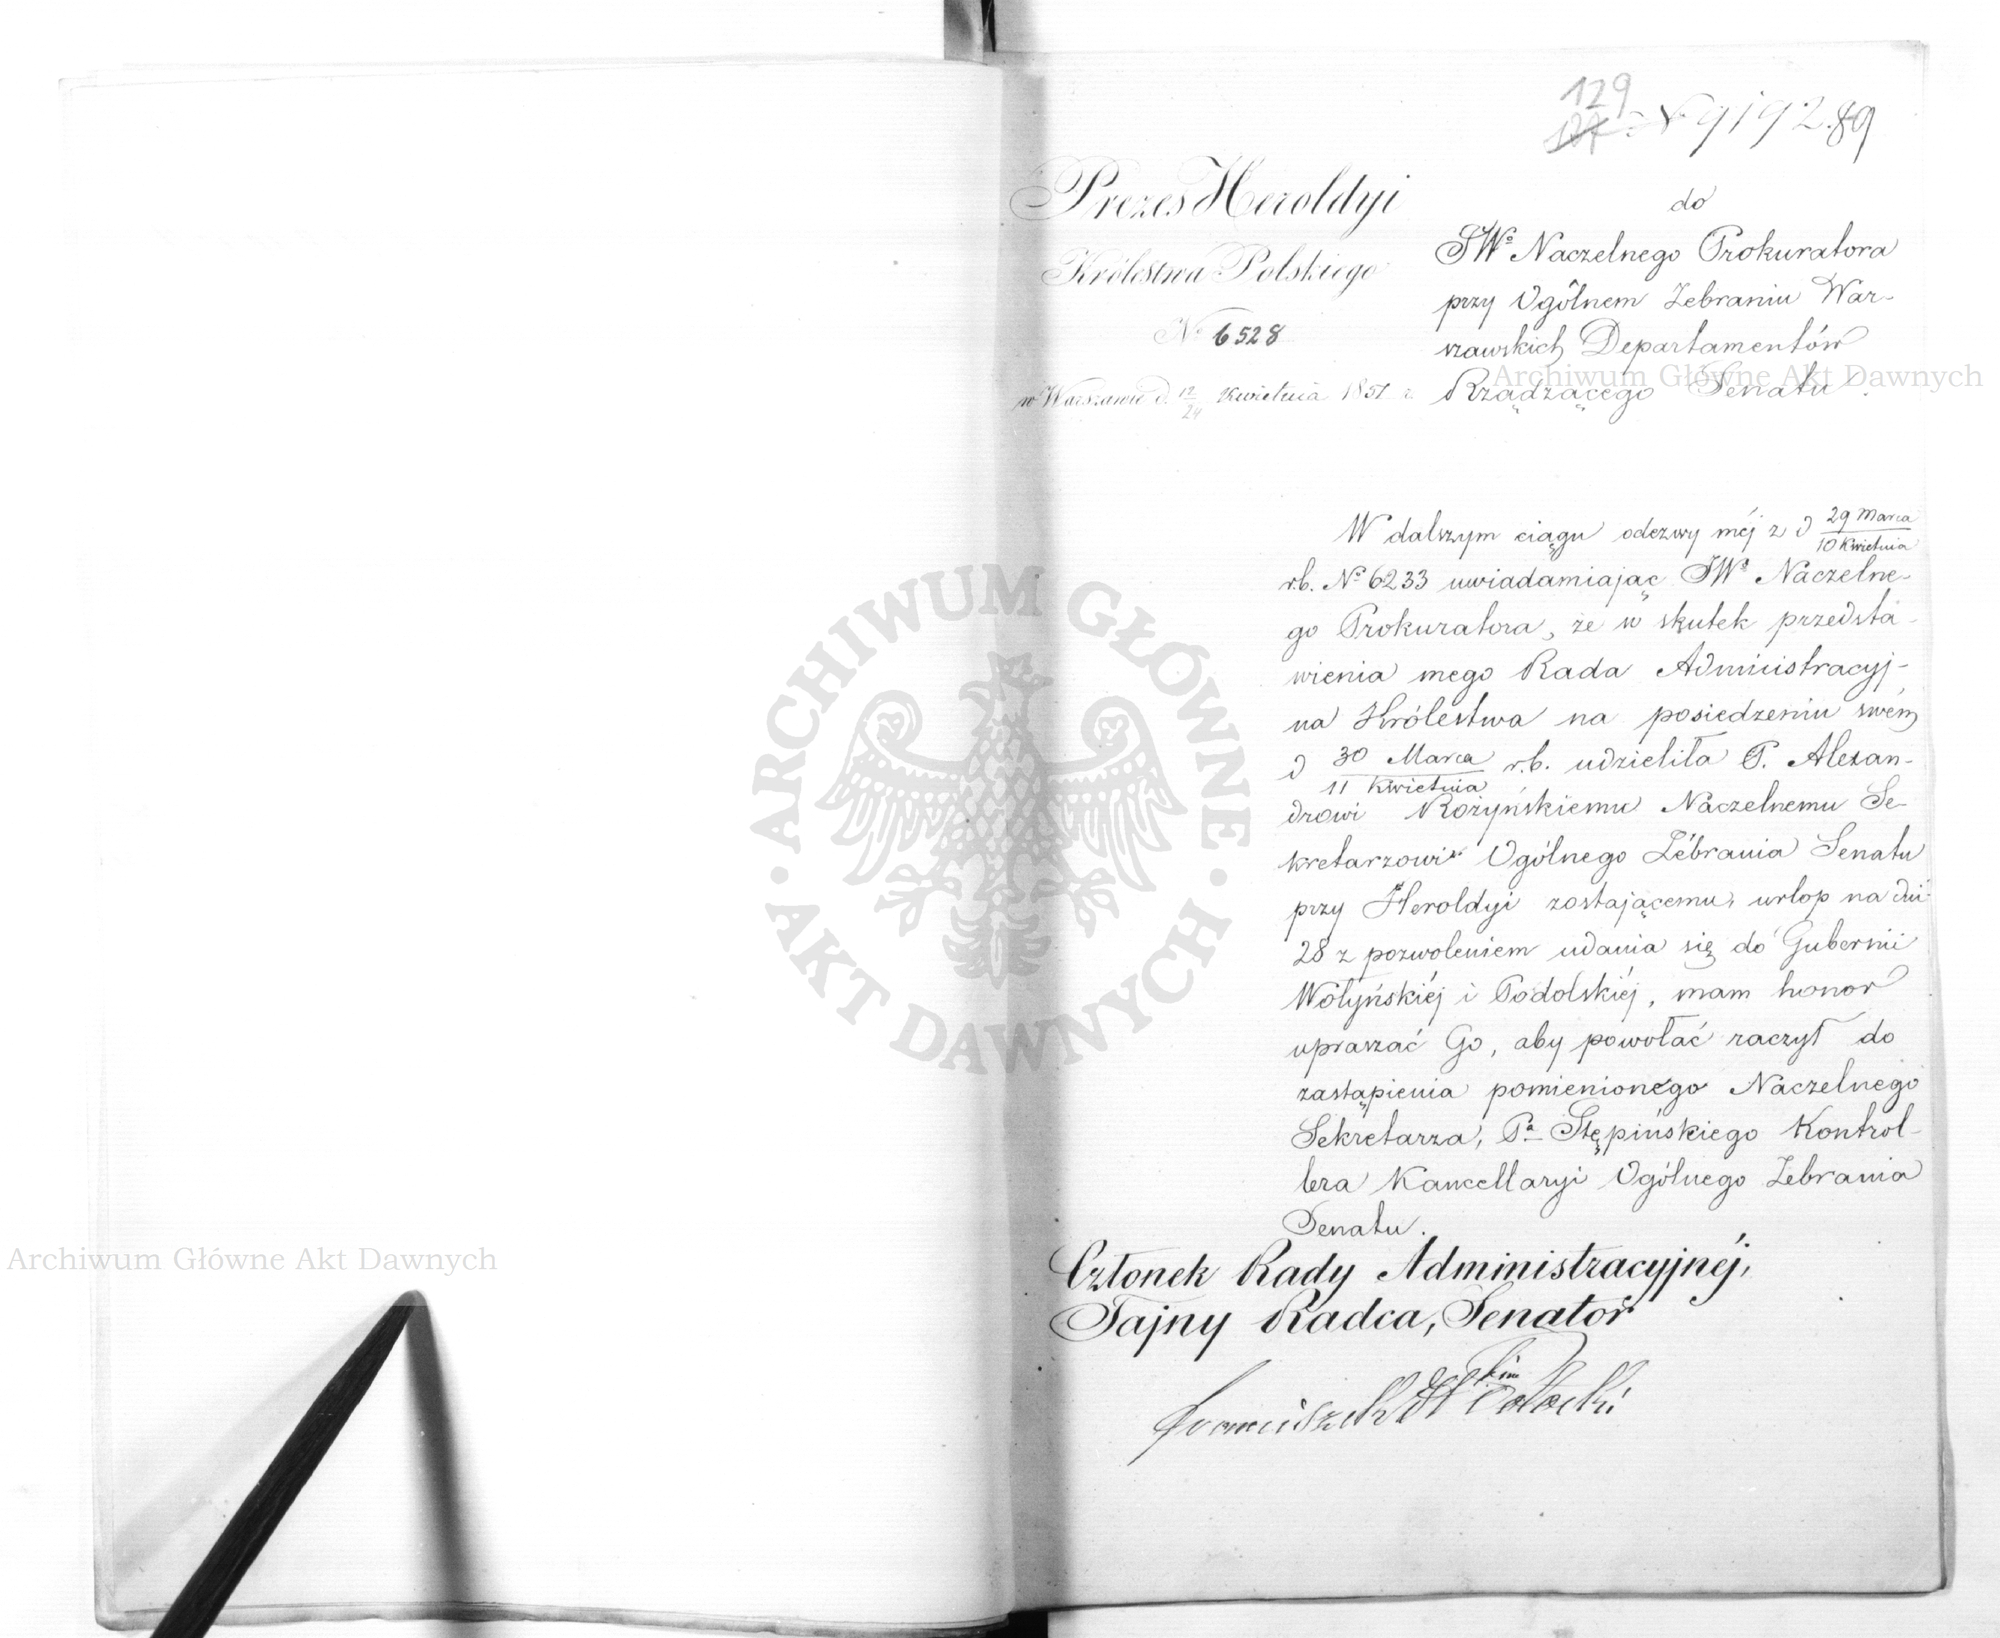 129
127
N 9192.89
Prezes Heroldyi
Królestwa Polskiego
No 6528
w Warszawie d. 12/24 Kwietnia 1851 r.
do
JWo Naczelnego Prokuratora
przy Ogólnem Zebraniu War-
szawskich Departamentów
Rządzącego Senatu.
W dalszym ciągu odezwy méj z d 29 Marca/10 Kwietnia
r.b. No 6233 uwiadamiając JWo Naczelne-
go Prokuratora, że w skutek przedsta-
wienia mego Rada Administracyj-
na Królestwa na posiedzeniu swém
d 30 Marca/11 Kwietnia r.b. udzieliła P. Alexan-
drowi Rożyńskiemu Naczelnemu Se-
kretarzowi Ogólnego Zébrania Senatu
przy Heroldyi zostającemu, urlop na dni
28 z pozwoleniem udania się do Gubernii
Wołyńskiéj i Podolskiéj, mam honor
upraszać Go, aby powołać raczył do
zastąpienia pomienionego Naczelnego
Sekretarza, Pa Stępińskiego Kontrol-
lera Kancellaryi Ogólnego Zebrania
Senatu.
Członek Rady Administracyjnéj,
Tajny Radca, Senator
Franciszek Potocki
Archiwum Główne Akt Dawnych
Archiwum Główne Akt Dawnych
ARCHIWUM GŁÓWNE · AKT DAWNYCH ·